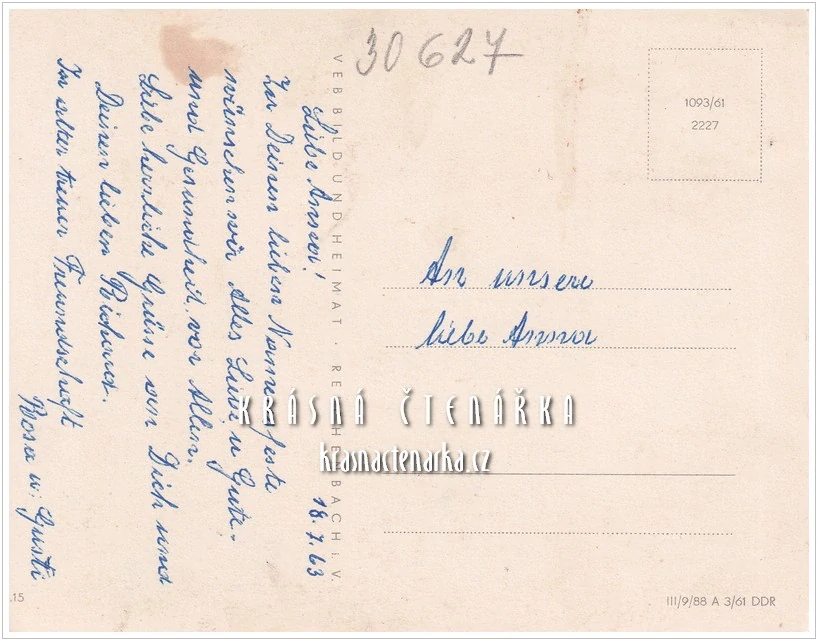 30627
1093/61
2227
Liebe Anna!
18.7.63
Zu Deinem lieben Namensfeste
wünschen wir Alles Liebe u Gute.
und Gesundheit vor Allem.
Liebe herzliche Grüsse an Dich und
Deinen lieben Richard.
In alter treuer Freundschaft
Rosa u. Gusti
VEB BILD UND HEIMAT · REICHENBACH i. V.
An unsere
liebe Anna
KRÁSNÁ ČTENÁŘKA
krasnactenarka.cz
.15
III/9/88 A 3/61 DDR